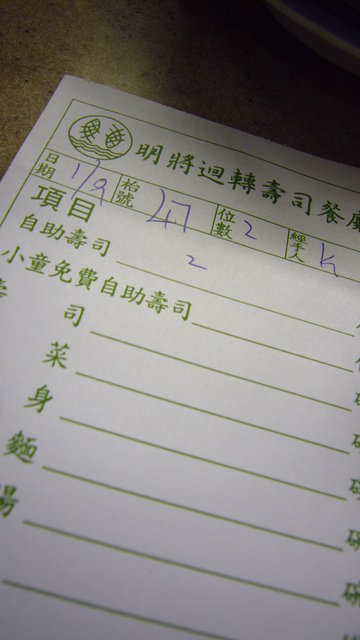 明將迴轉壽司餐廳
日期 1/9 枱號 47 位數 2 經手人 K
項目
自助壽司 2
小童免費自助壽司
壽司
菜
身
麵
湯